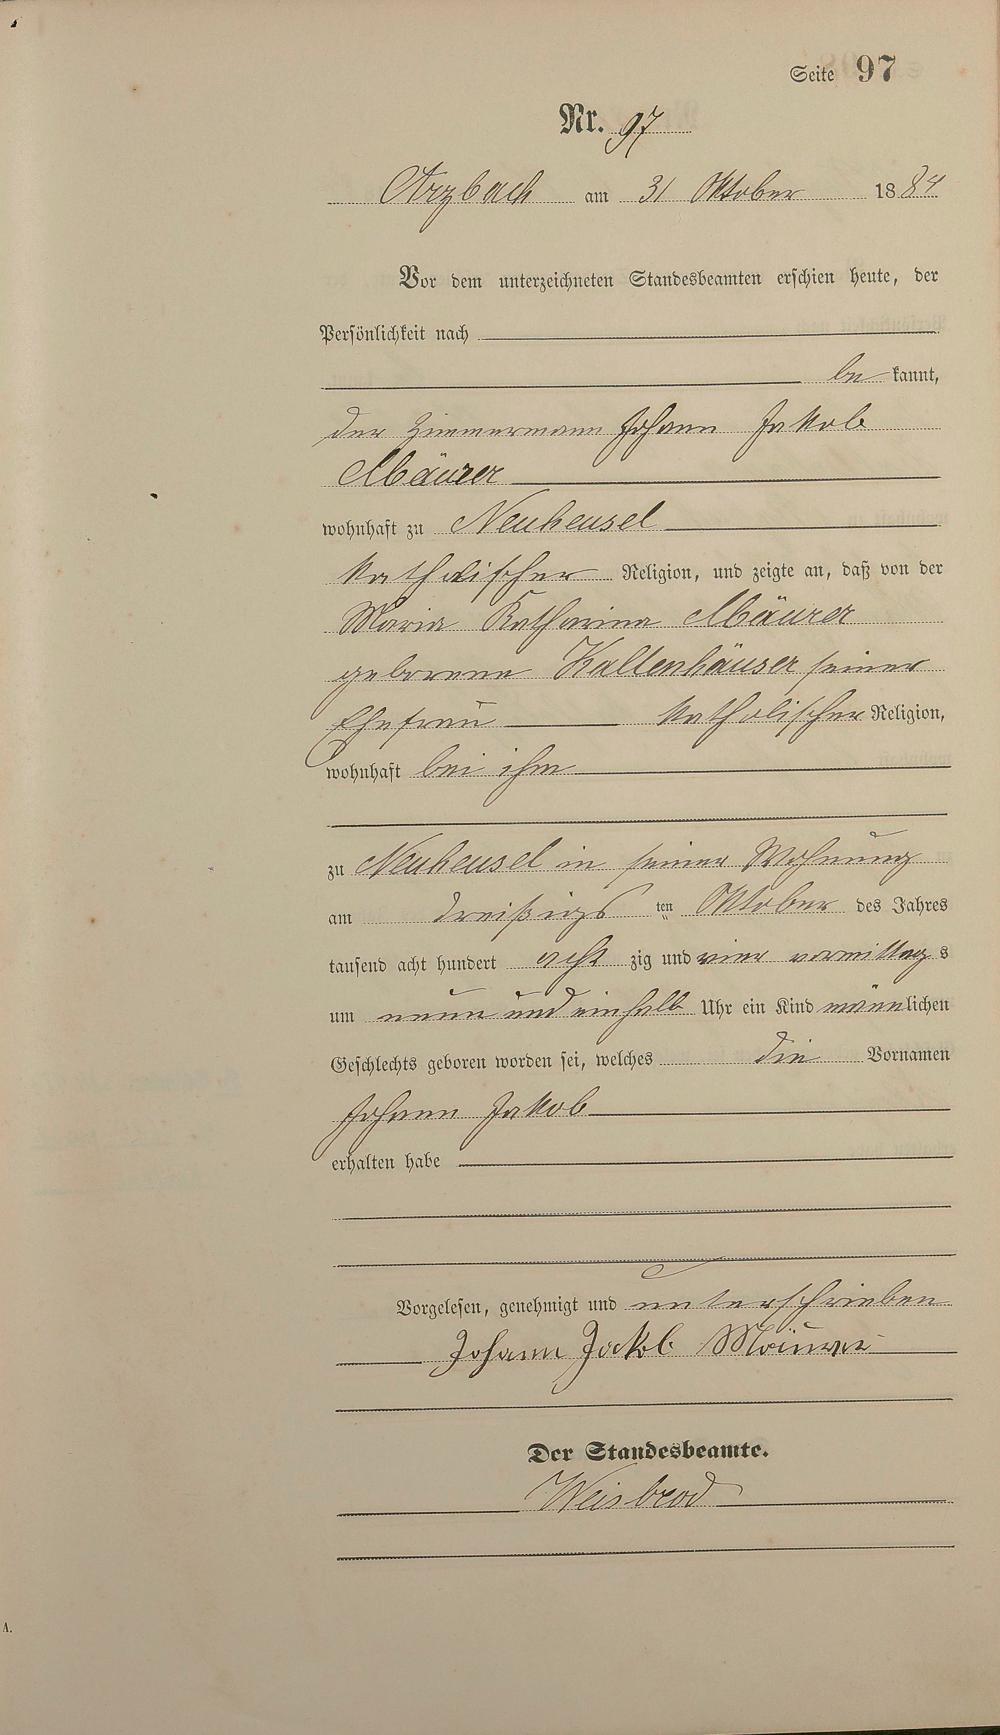 Seite 97
Nr. 97
Arzbach am 31 Oktober 1884
Vor dem unterzeichneten Standesbeamten erschien heute, der
Persönlichkeit nach
be kannt,
der Zimmermann Johann Jakob
Mäurer
wohnhaft zu Neuheusel
katholischer Religion, und zeigte an, daß von der
Maria Katharina Mäurer
geborene Kaltenhäuser seiner
Ehefrau katholischer Religion,
wohnhaft bei ihm
zu Neuheusel in seiner Wohnung
am dreißigs ten Oktober des Jahres
tausend acht hundert acht zig und vier vormittag s
um neun und einhalb Uhr ein Kind männlichen
Geschlechts geboren worden sei, welches die Vornamen
Johann Jakob
erhalten habe
Vorgelesen, genehmigt und unterschrieben
Johann Jakob Mäurer
Der Standesbeamte.
Weisbrod
A.